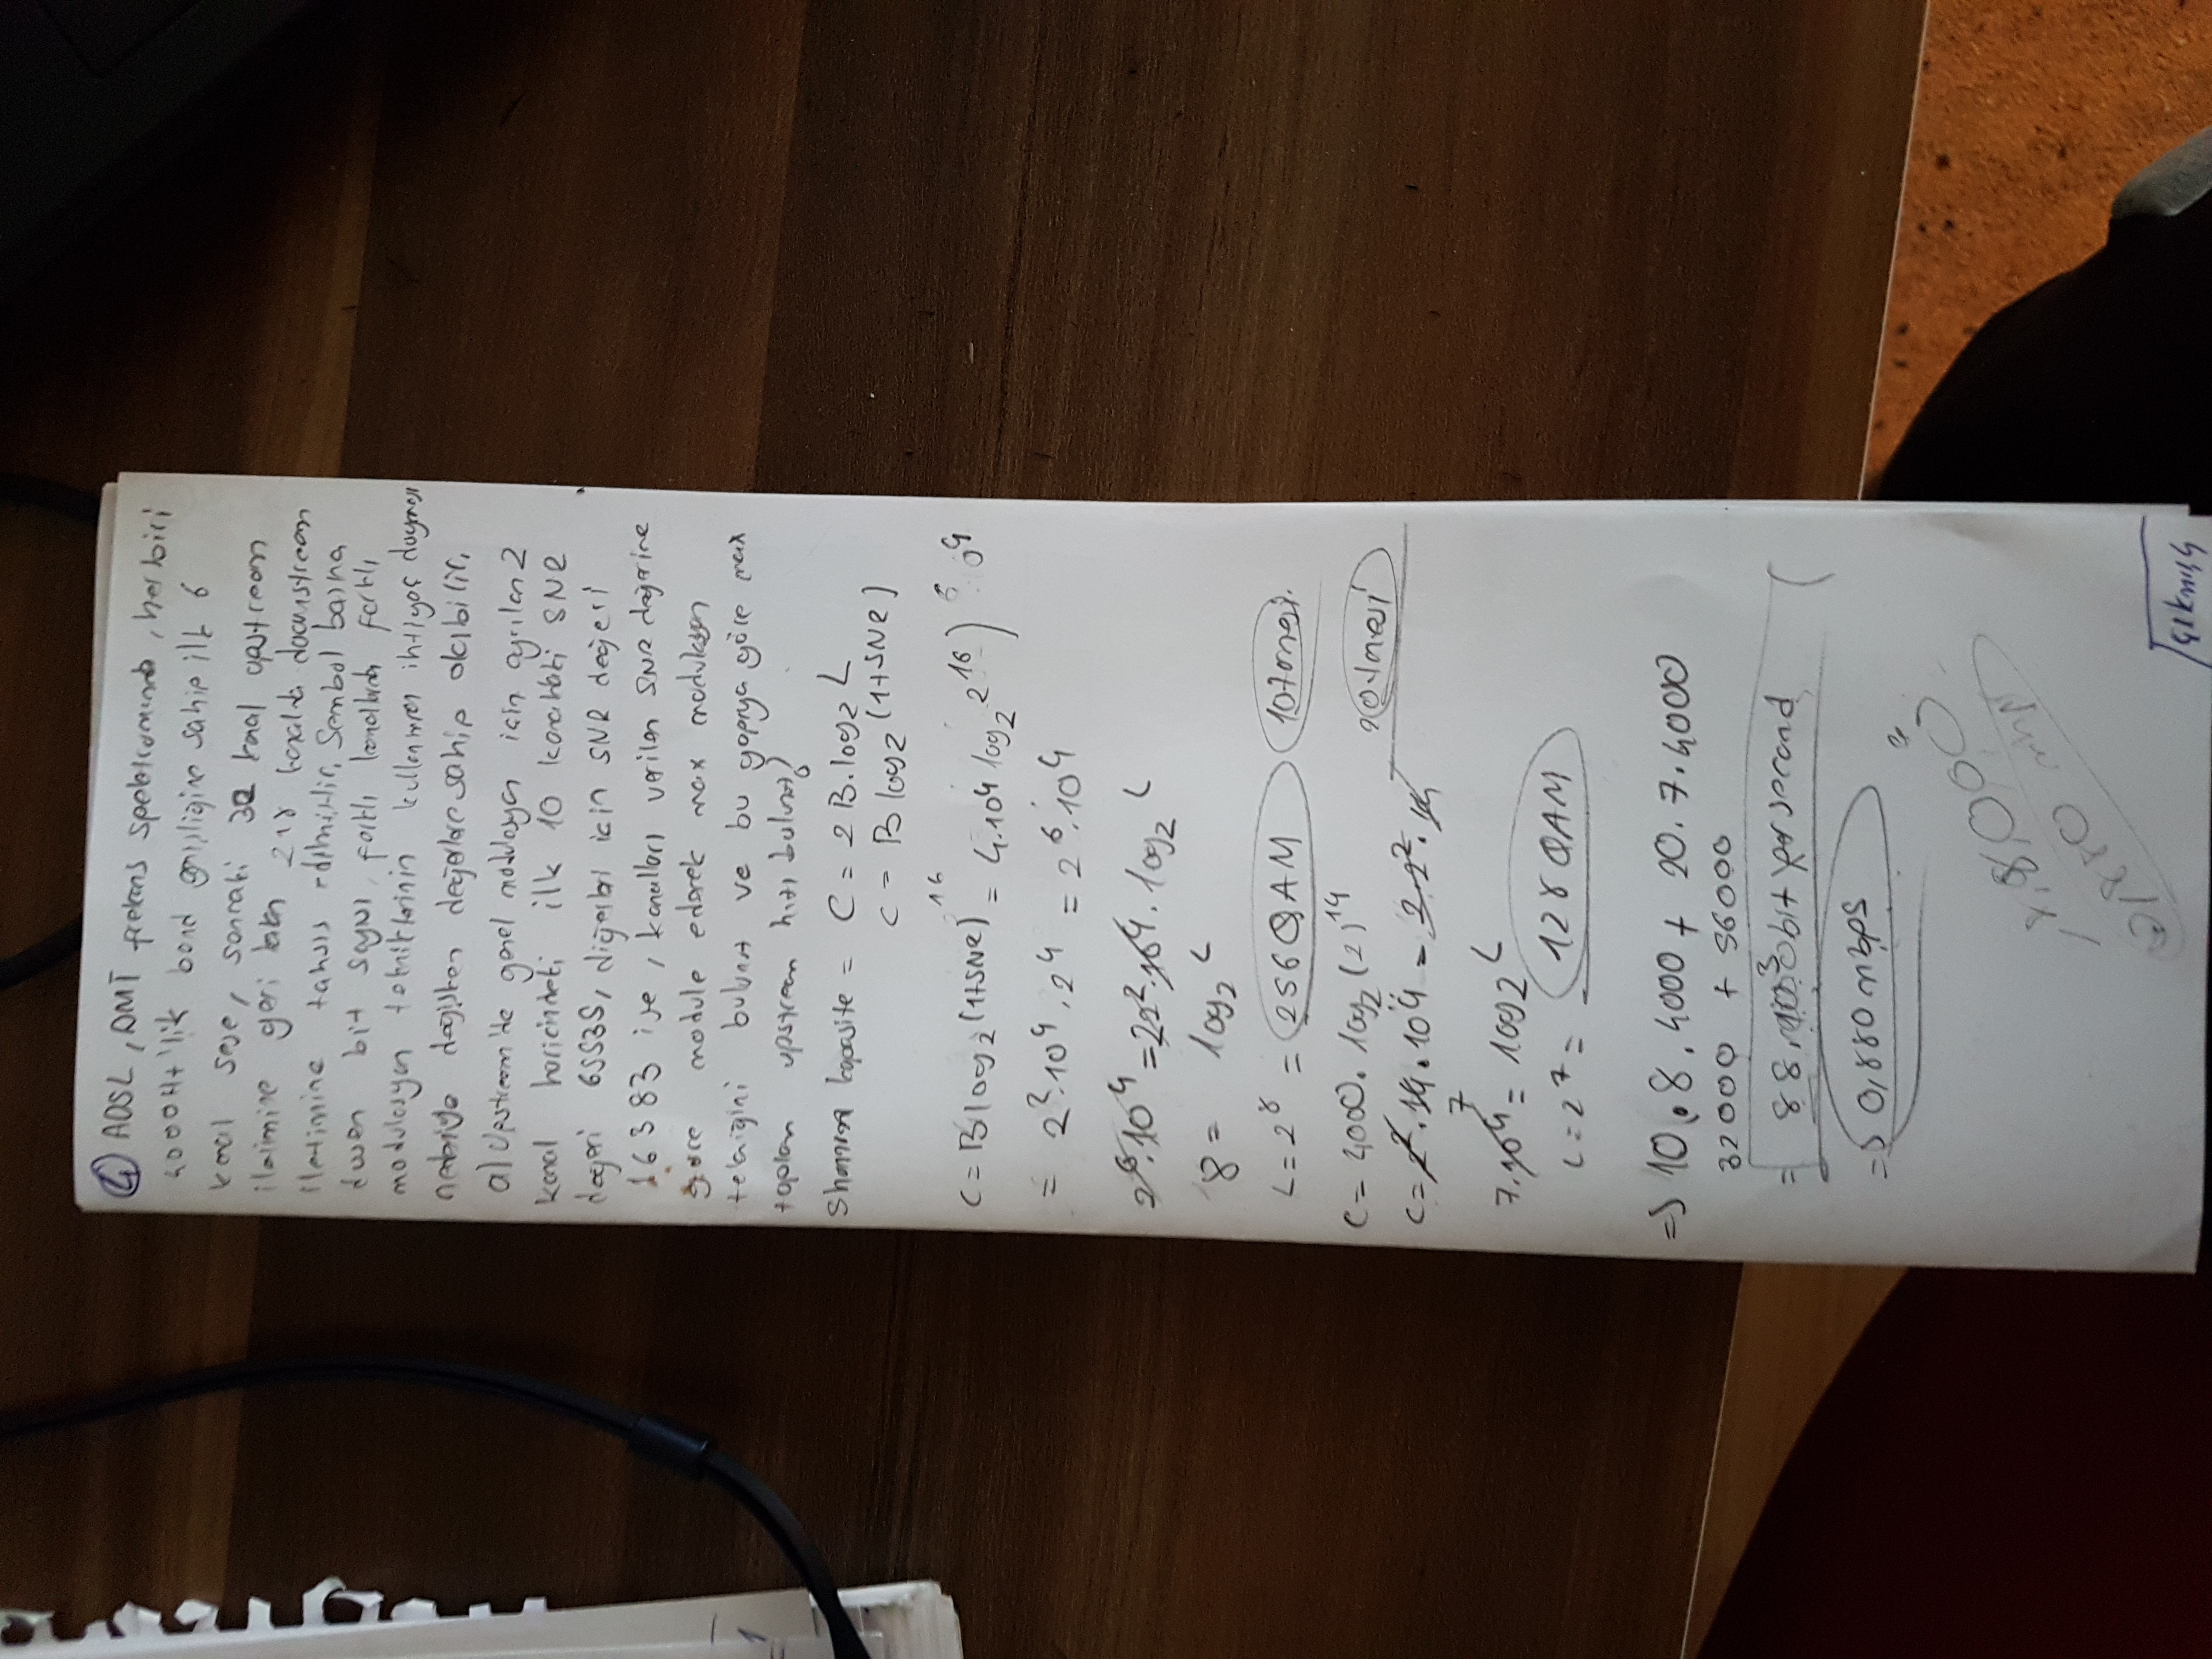 4 ADSL, DMT frekans spektrumunda, her biri
4000Hz'lik band genişliğine sahip ilk 6
kanal sese, sonraki 32 kanal upstream
iletimine geri kalan 218 kanalda downstream
iletimine tahsis edilmiştir. Sembol başına
düşen bit sayısı, farklı kanallarda farklı
modülasyon tekniklerinin kullanımına ihtiyaç duyması
nedeniyle değişken değerlere sahip olabilir.
a) Upstream'de genel modülasyon için ayrılan 2
kanal haricindeki ilk 10 kanaldaki SNR
değeri 65535, diğerleri için SNR değeri
16383 ise, kanalları verilen SNR değerine
göre module ederek max modulasyon
tekniğini bulunuz ve bu yapıya göre max
toplam upstream hızı bulunuz?
Shannon kapasite = C = 2B.log2 L
C = B log2 (1+SNR)
C = B log2 (1+SNR) 16 = 4.10^4 log2 2^16 ) 6 0^4
= 2^2.10^4.2^4 = 2^6.10^4
2^6.10^4 = 22^2.10^4.log2 L
8 = log2 L
L = 2^8 = 256QAM 10 tanesi.
C = 4000.log2 (2)^14 20 tanesi
C = 2^2.14.10^4 = 2.2^2.14
7
7.10^4 = log2 L
L = 2^7 = 128QAM
=> 10.8.4000 + 20.7.4000
32000 + 56000
= 88. bit per second
=> 0,880 mbps
8,8,000
0,880 mbps